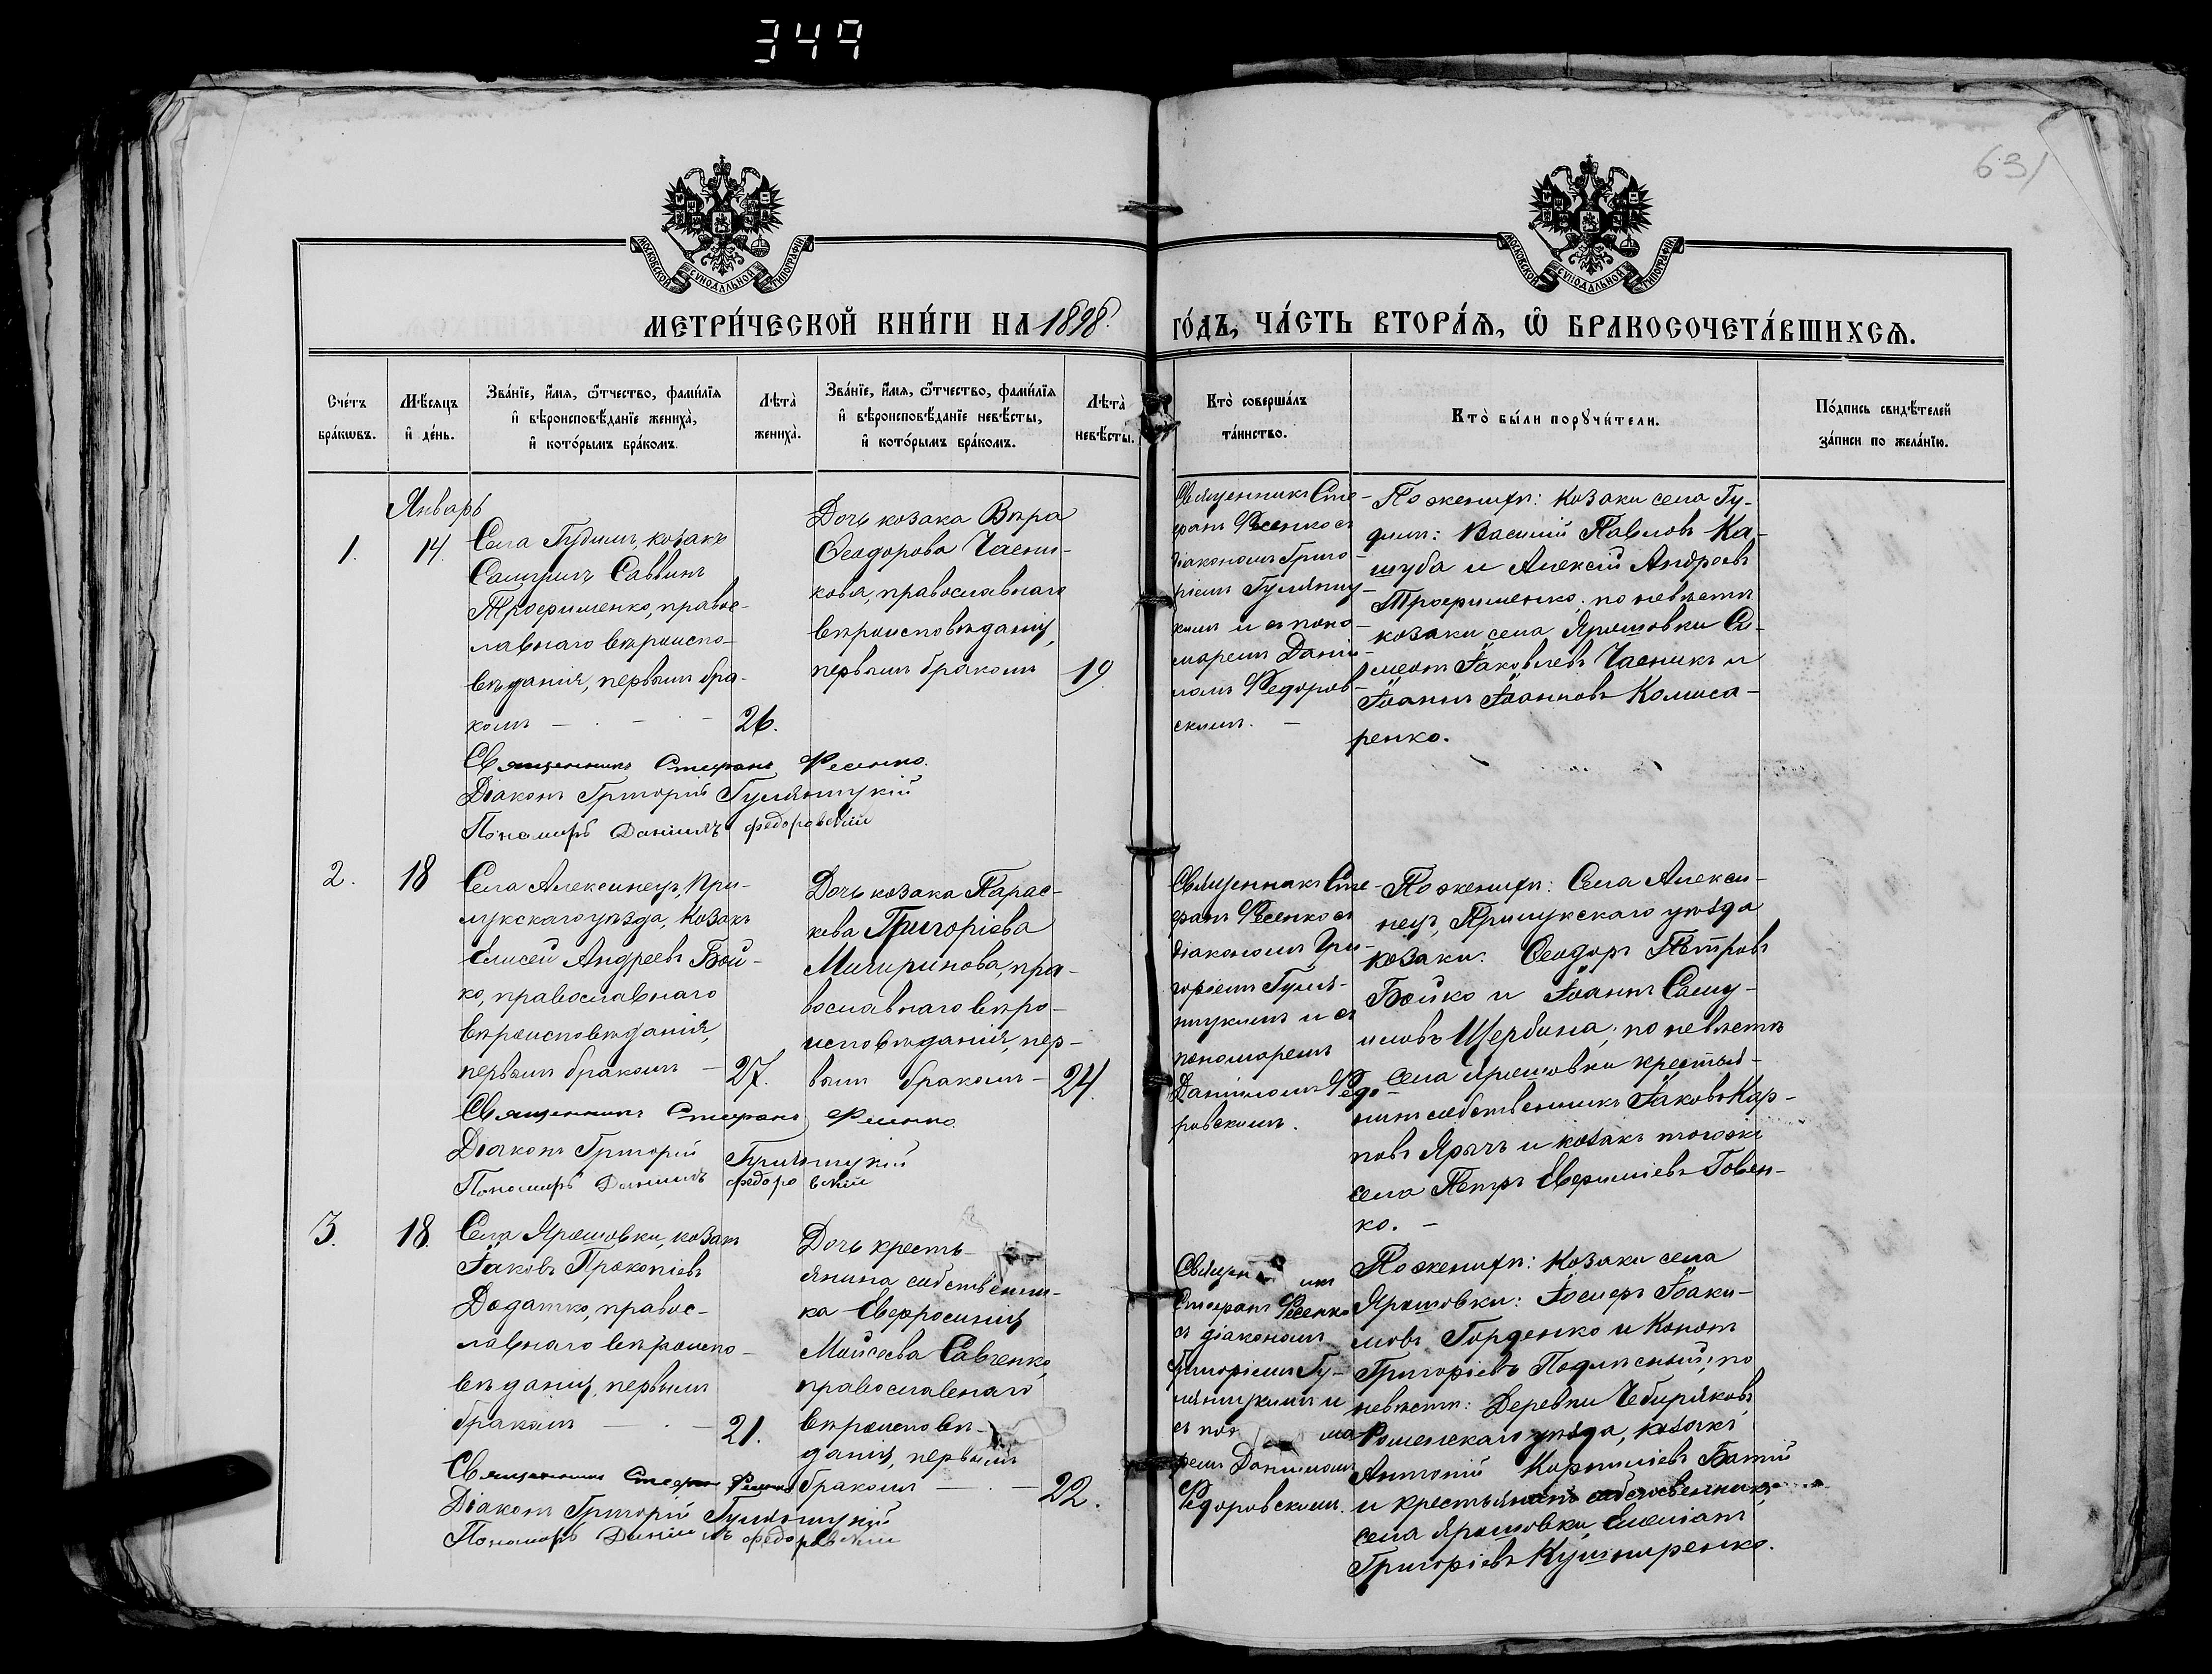 349
631
МОСКОВСКОЙ СѴНОДАЛЬНОЙ ТИПОГРАФІИ
МОСКОВСКОЙ СѴНОДАЛЬНОЙ ТИПОГРАФІИ
МЕТРИ́ЧЕСКОЙ КНИ́ГИ НА 1898.
ГО́ДЪ, ЧА́СТЬ ВТОРА́Я, Ѡ БРАКОСОЧЕТА́ВШИХСЯ.
Сче́тъ
бра́кѡвъ.
Мѣ́сяцъ
и де́нь.
Зва́нїе, и́мя, ѻ́тчество, фами́лїя
и вѣроисповѣ́данїе жениха̀,
и кото́рымъ бра́комъ.
Лѣта̀
жениха̀.
Зва́нїе, и́мя, ѻ́тчество, фами́лїя
и вѣроисповѣ́данїе невѣ́сты,
и кото́рымъ бра́комъ.
Лѣта̀
невѣ́сты.
Кто̀ соверша́лъ
та́инство.
Кто̀ бы́ли порꙋчи́тели.
По́дпись свидѣ́телей
за́писи по жела́нїю.
Январь
1.
14.
Села Гудимъ, козакъ
Савва Саввинъ
Трофименко, правос-
лавнаго вѣроиспо-
вѣданія, первымъ бра-
комъ —
26.
Дочь козака Вѣра
Ѳеодорова Часни-
кова, православнаго
вѣроисповѣданія,
первымъ бракомъ
19.
Священникъ Сте-
фанъ Фесенко съ
діакономъ Григо-
ріемъ Гуляниц-
кимъ и съ поно-
маремъ Дані-
ломъ Федоров-
скимъ. —
По женихѣ: козаки села Гу-
димъ: Василій Павловъ Ка-
шуба и Алексій Андреевъ
Трофименко; по невѣстѣ
козаки села Ярошовки Си-
меонъ Іаковлевъ Часникъ и
Іоаннъ Іоанновъ Комиса-
ренко.
Священникъ Стефанъ Фесенко.
Діаконъ Григорій Гуляницкій
Пономарь Даніилъ Федоровскій
2.
18
Села Алексинецъ, При-
лукскаго уѣзда, козакъ
Елисей Андреевъ Бой-
ко, православнаго
вѣроисповѣданія,
первымъ бракомъ —
27.
Дочь козака Парас-
кева Григоріева
Мичиринова, пра-
вославнаго вѣро-
исповѣданія, пер-
вымъ бракомъ —
24.
Священникъ Сте-
фанъ Фесенко съ
діакономъ Гри-
горіемъ Гуля-
ницкимъ и съ
пономаремъ
Даніиломъ Федо-
ровскимъ.
По женихѣ: Села Алекси-
нецъ, Прилукскаго уѣзда
козаки: Ѳеодоръ Петровъ
Бойко и Іоаннъ Саму-
иловъ Щербина; по невѣстѣ
села Ярошовки крестья-
нинъ собственникъ Іаковъ Кар-
повъ Ярычъ и козакъ тогоже
села Петръ Евфиміевъ Говен-
ко. —
Священникъ Стефанъ Фесенко.
Діаконъ Григорій Гуляницкій
Пономарь Даніилъ Федоровскій
3.
18.
Села Ярошовки, козакъ
Іаковъ Прокопіевъ
Додатко, правос-
лавнаго вѣроиспо-
вѣданія, первымъ
бракомъ —
21.
Дочь кресть-
янина собственни-
ка Евфросинія
Моисеева Савченко,
православнаго
вѣроисповѣ-
данія, первымъ
бракомъ —
22.
Священникъ
Стефанъ Фесенко
съ діакономъ
Григоріемъ Гу-
ляницкимъ и
съ пономa
ремъ Даніиломъ
Федоровскимъ.
По женихѣ: козаки села
Ярошовки: Іосифъ Іоаки-
мовъ Горденко и Кононъ
Григоріевъ Подлѣсный; по
невѣстѣ: Деревни Чебиряковъ
Роменскаго уѣзда, козакъ
Антоній Корниліевъ Батій
и крестьянинъ собственникъ
села Ярошовки Емеліанъ
Григоріевъ Кушниренко.
Священникъ Стефанъ Фесенко
Діаконъ Григорій Гуляницкій
Пономарь Даніилъ Федоровскій